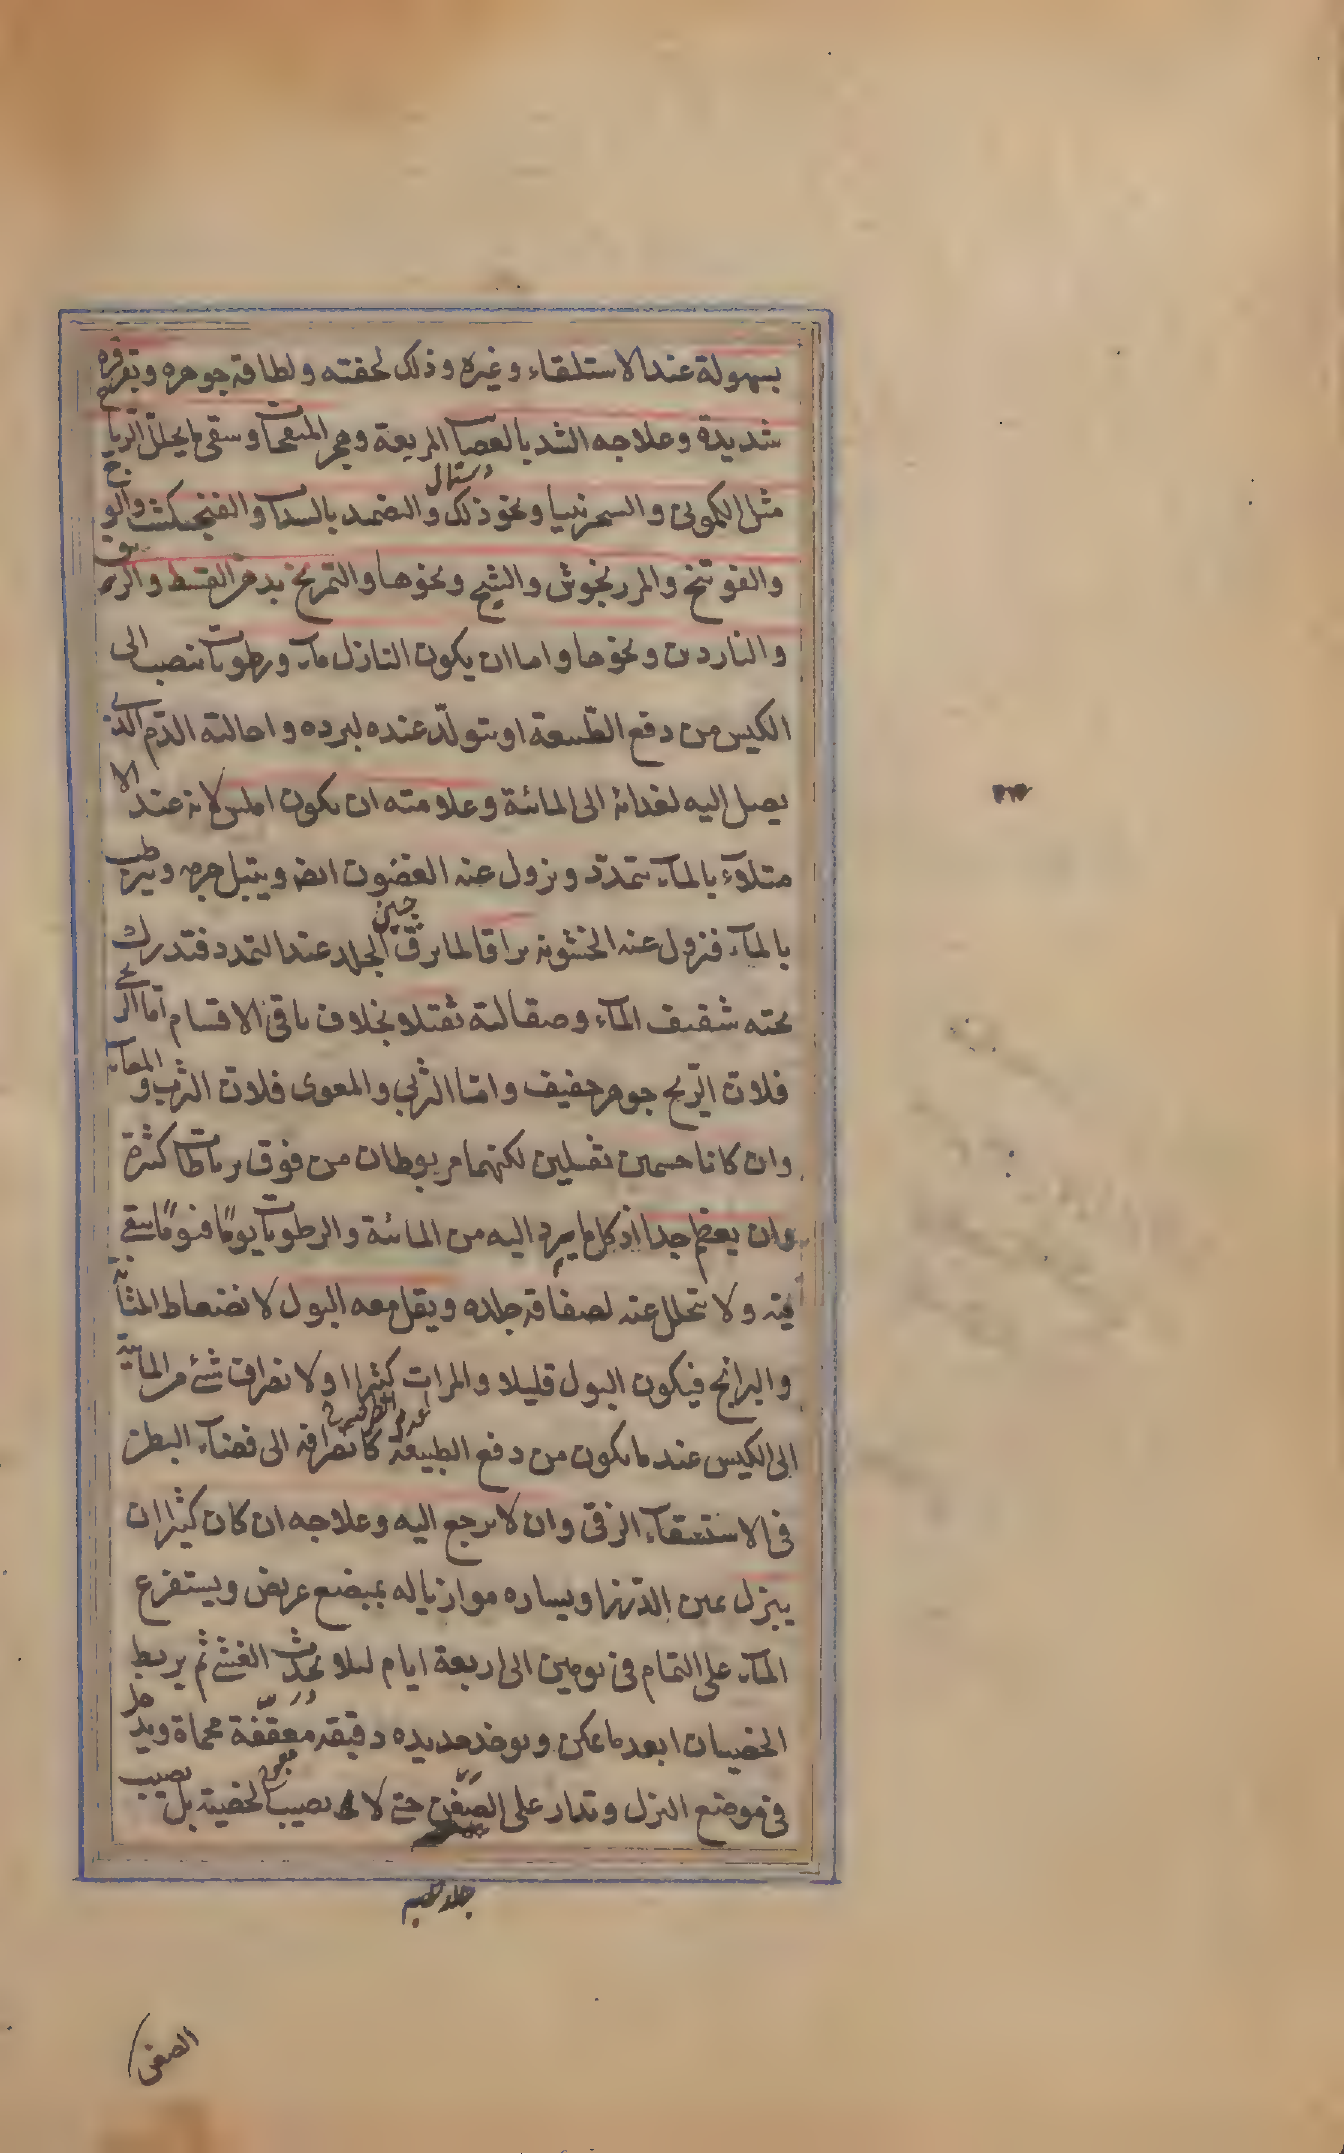 بسهولة عند الاستلقاء وغيره وذلك لخفته ولطافة جوهره وبقرقرة
شديدة وعلاجه الشد بالعصائب المربعة وهجر المنفخات وسقى ما يحلل الرياح
مثل الكمونى والسجرنيا ونحو ذلك والتضميد بالسداب والفنجنكشت والوج
والفوتنج والمرزنجوش والشيح ونحوها والتمريخ بدهن القسط والزنبق
والناردين ونحوها واما ان يكون النازل ماء ورطوبات تنصب الى
الكيس من دفع الطبيعة او تتولد عنده لبرده واحالته الدم الذى
يصل اليه لغذائه الى المائية وعلامته ان يكون املس لانه عند الا
متلاء بالماء يتمدد ويزول عنه الغضون ايضا ويبتل جرمه ويترطب
بالماء فتزول عنه الخشونة براقا لما يرق الجلد عند التمدد فتدرك
تحته شفيف الماء وصقالته ثقيلا بخلاف باقى الاقسام اما الريحى
فلان الريح جوهر خفيف واما الثربى والمعوى فلان الثرب والمعاء
وان كانا جسمين ثقيلين لكنهما مربوطان من فوق برباطات كثيرة
وان يعظم جدا اذ كل ما يرد اليه من المائية والرطوبات يوما فيوما يبقى
فيه ولا يتحلل عنه لصفاقة جلده ويقل معه البول لانضغاط المثانة
والبرابخ فيكون البول قليلا والمرات كثيرا اولا نصراف شئ من المائية
الى الكيس عند ما يكون من دفع الطبيعة كانصرافه الى فضاء البطن
فى الاستسقاء الزقى وان لا يرجع اليه وعلاجه ان كان كثيرا ان
يبزل عن يمين الدرز او يساره موازيا له بمبضع عريض ويستفرغ
الماء على التمام فى يومين الى اربعة ايام لئلا يحدث الغشى ثم يربط
الخصيتان ابعد ما يمكن ويوخذ حديده دقيقة معقفة محماة ويدخل
فى موضع البزل وتدار على الصفن حتى لا تصيب الخصية بل تصيب
الصفن